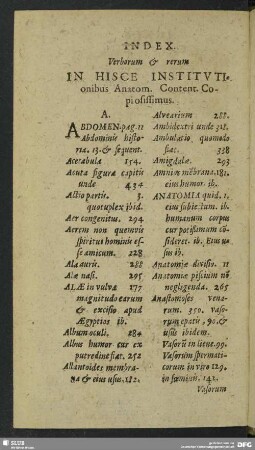 INDEX
Verborum & rerum
IN HISCE INSTITVTI-
onibus Anatom. Content. Co-
piosissimus.
A.
ABDOMEN. pag. 11
Abdominis histo-
ria. 13. & sequent.
Acetabula 154.
Acuta figura capitis
unde 434
Actio partis 3.
quotuplex ibid.
Aer congenitus. 294
Aerem non quemvis
spiritus hominis es-
se amicum. 228
Ala auris. 288
Alæ nasi. 295
ALÆ in vulva 177
magnitudo earum
& excisio apud
Ægyptios ib.
Album oculi. 284
Albus humor cur ex
putredine fiat. 252
Allantoides membra-
na & ejus usus. 182.
Alvearium 288.
Ambidextri unde 318.
Ambulatio quomodo
fiat. 328
Amigdalæ. 293
Amnios mēbrana. 181.
ejus humor. ib.
ANATOMIA quid. 1.
ejus subiectum. ib.
humanum corpus
cur potissimum cō-
sideret. ib. Ejus no
sus ib.
Anatomiæ divisio. 11
Anatomiæ piscium nō
negligenda. 265
Anastomoses vena-
rum. 350. vaso-
rum epatis. 90. &
usus ibidem.
Vasorū in liene. 99.
Vasorūm spermati-
corum in viro 129.
in fœminis. 142.
Vasorum
SLUB
DFG